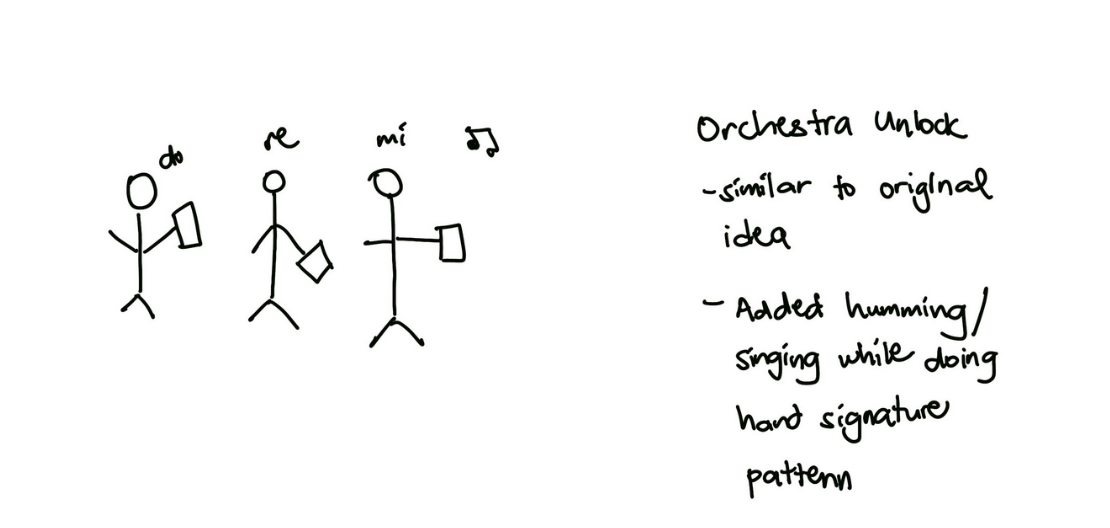 do
re
mi
Orchestra Unlock
-similar to original
idea
- Added humming/
singing while doing
hand signature
pattern